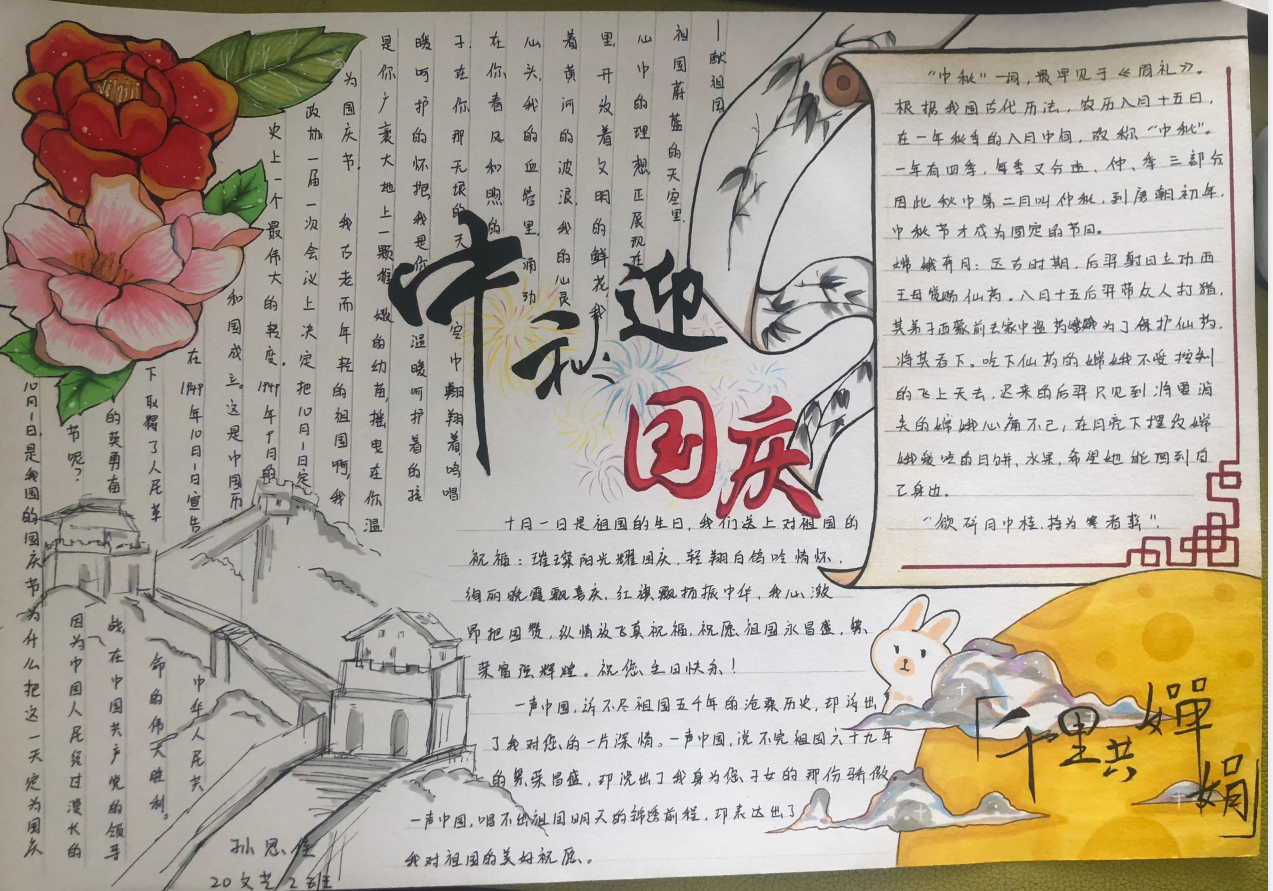 中秋迎
国庆
10月1日是我国的国庆节为什么把这一天定为国庆
节呢?因为中国人民经过漫长的
的英勇奋战,在中国共产党的领导
下取得了人民革命的伟大胜利。
在1949年10月1日宣告中华人民共
和国成立。这是中国历
史上一个最伟大的转度。1949年9月的
政协一届一次会议上决定把10月1日定
为国庆节。 我古老而年轻的祖国啊,我
是你广袤大地上一颗摇曳的幼苗,摇曳在你温
暖呵护的怀抱,我是你温暖呵护着的孩
子,在你那无垠的天空中翱翔着,鸣唱
在你春风和煦的
心头,我的血管里涌动
着黄河的波浪,我的心灵
里,开放着文明的鲜花,我
心中的理想正展现在
祖国蔚蓝的天空里.
—献祖国
“中秋”一词,最早见于《周礼》。
根据我国古代历法,农历八月十五日,
在一年秋季的八月中间,故称“中秋”。
一年有四季,每季又分孟、仲、季三部分
因此秋中第二月叫仲秋,到唐朝初年,
中秋节才成为固定的节日。
嫦娥奔月:远古时期,后羿射日立功西
王母赏赐仙药。八月十五后羿带众人打猎,
其弟子西蒙前去家中盗药嫦娥为了保护仙药,
将其吞下。吃下仙药的嫦娥不受控制
的飞上天去,迟来的后羿只见到将要消
失的嫦娥心痛不已,在月亮下摆放嫦
娥爱吃的月饼、水果,希望她能回到自
己身边。
“欲斫月中桂,持为寒者薪”.
十月一日是祖国的生日,我们送上对祖国的
祝福:璀璨阳光耀国庆,轻翔白鸽吟情怀,
绚丽晚霞飘喜庆,红旗飘扬振中华,我心激
昂把国赞,纵情放飞真祝福,祝愿祖国永昌盛,繁
荣富强辉煌。祝您生日快乐!
一声中国,诉不尽祖国五千年的沧桑历史,却诉出
了我对您的一片深情。一声中国,说不完祖国六十九年
的繁荣昌盛,却说出了我身为您子女的那份骄傲。
一声中国,唱不出祖国明天的锦绣前程,却表达出了
我对祖国的美好祝愿。
「千里共婵娟」
孙思佳
20文艺2班